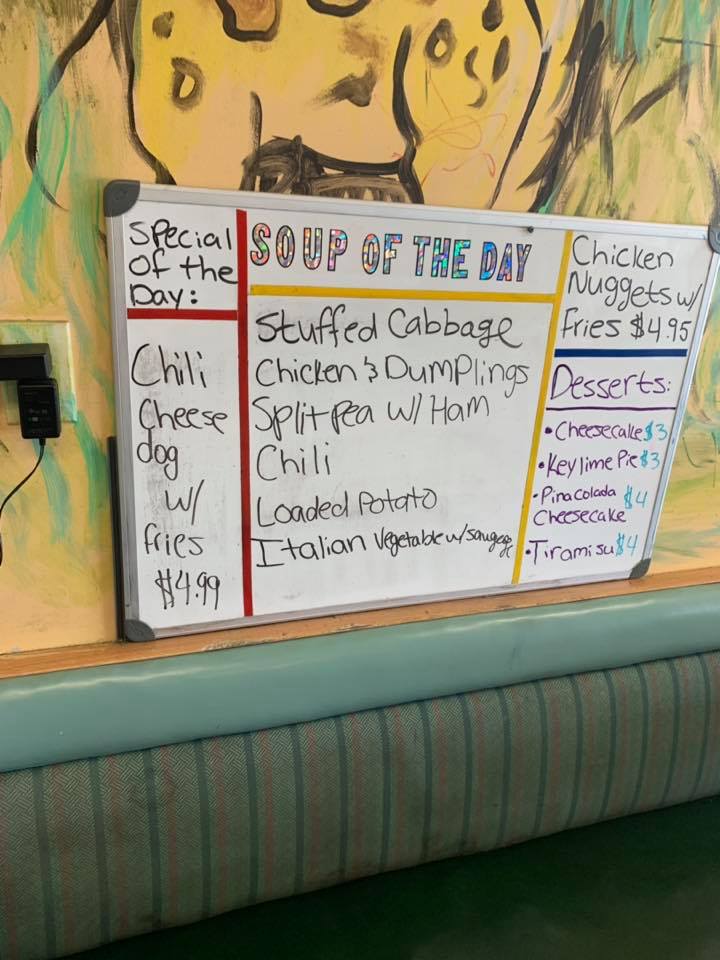 Special
Of the
Day:
Chili
Cheese
dog
w/
fries
$4.99
SOUP OF THE DAY
Stuffed Cabbage
Chicken & Dumplings
Split pea w/ Ham
Chili
Loaded Potato
Italian Vegetable w/ sausage
Chicken
Nuggets w/
fries $4.95
Desserts:
• Cheesecake $3
• Key lime Pie $3
• Pina colada $4
Cheesecake
• Tiramisu $4